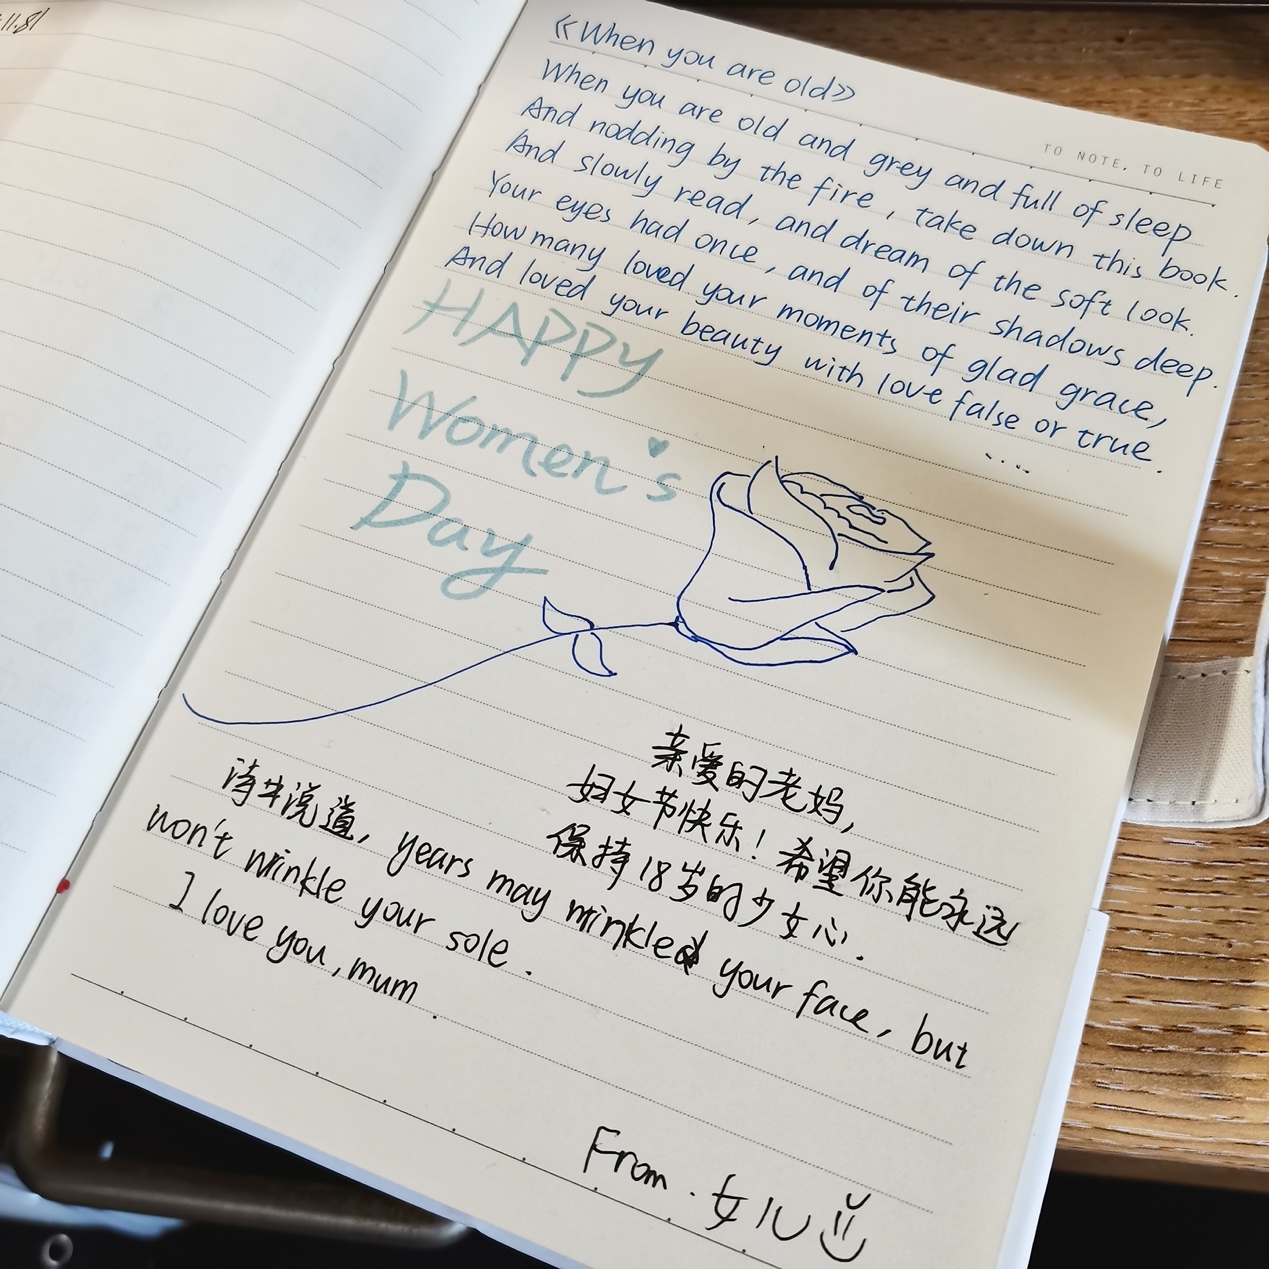 《When you are old》
TO NOTE, TO LIFE
When you are old and grey and full of sleep
And nodding by the fire, take down this book.
And slowly read, and dream of the soft look.
Your eyes had once, and of their shadows deep.
How many loved your moments of glad grace,
And loved your beauty with love false or true.
....
HAPPY
Women's
Day
亲爱的老妈,
妇女节快乐!希望你能永远
保持18岁的少女心.
诗中说道, years may wrinkled your face, but
won't wrinkle your sole.
I love you, mum.
From. 女儿